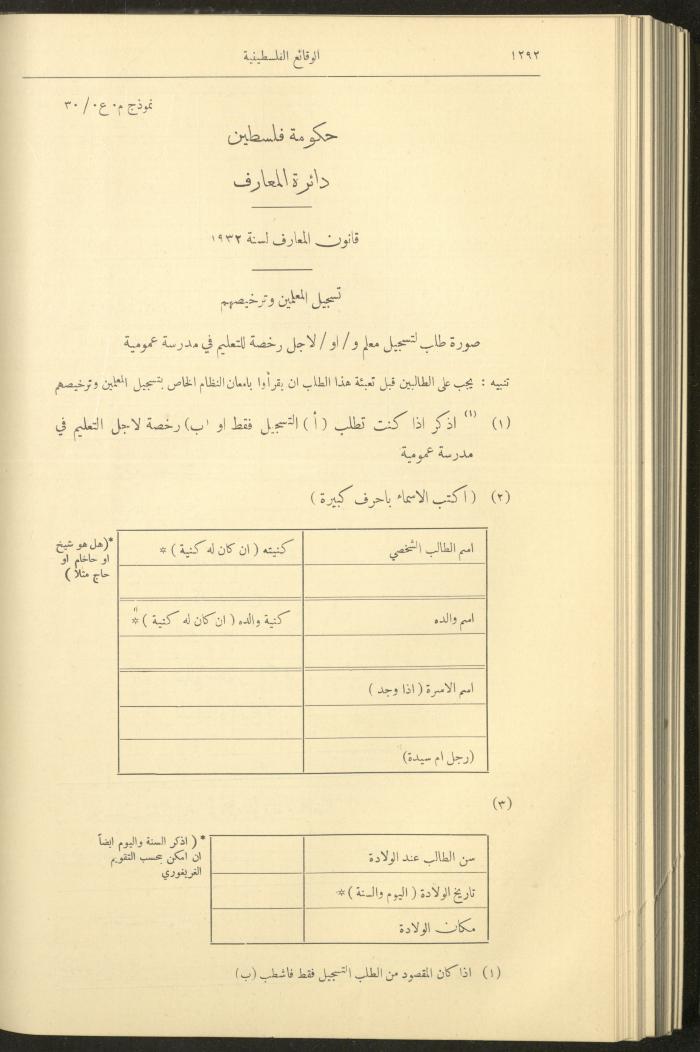 ١٢٩٢
الوقائع الفلسطينية
نموذج م٠ع٠/٣٠
حكومة فلسطين
دائرة المعارف
قانون المعارف لسنة ١٩٣٢
تسجيل المعلمين وترخيصهم
صورة طلب لتسجيل معلم و/او/لاجل رخصة للتعليم في مدرسة عمومية
تنبيه : يجب على الطالبين قبل تعبئة هذا الطلب ان يقرأوا بامعان النظام الخاص بتسجيل المعلمين وترخيصهم
(١) (١) اذكر اذا كنت تطلب (أ) التسجيل فقط او (ب) رخصة لاجل التعليم في
مدرسة عمومية
(٢) (اكتب الاسماء باحرف كبيرة)
اسم الطالب الشخصي
كنيته (ان كان له كنية)*
*(هل هو شيخ
او حاخام او
حاج مثلاً)
اسم والده
كنية والده (ان كان له كنية)*
اسم الاسرة (اذا وجد)
(رجل ام سيدة)
(٣)
سن الطالب عند الولادة
تاريخ الولادة (اليوم والسنة)*
مكان الولادة
*(اذكر السنة واليوم ايضاً
ان امكن بحسب التقويم
الغريغوري
(١) اذا كان المقصود من الطلب التسجيل فقط فاشطب (ب)